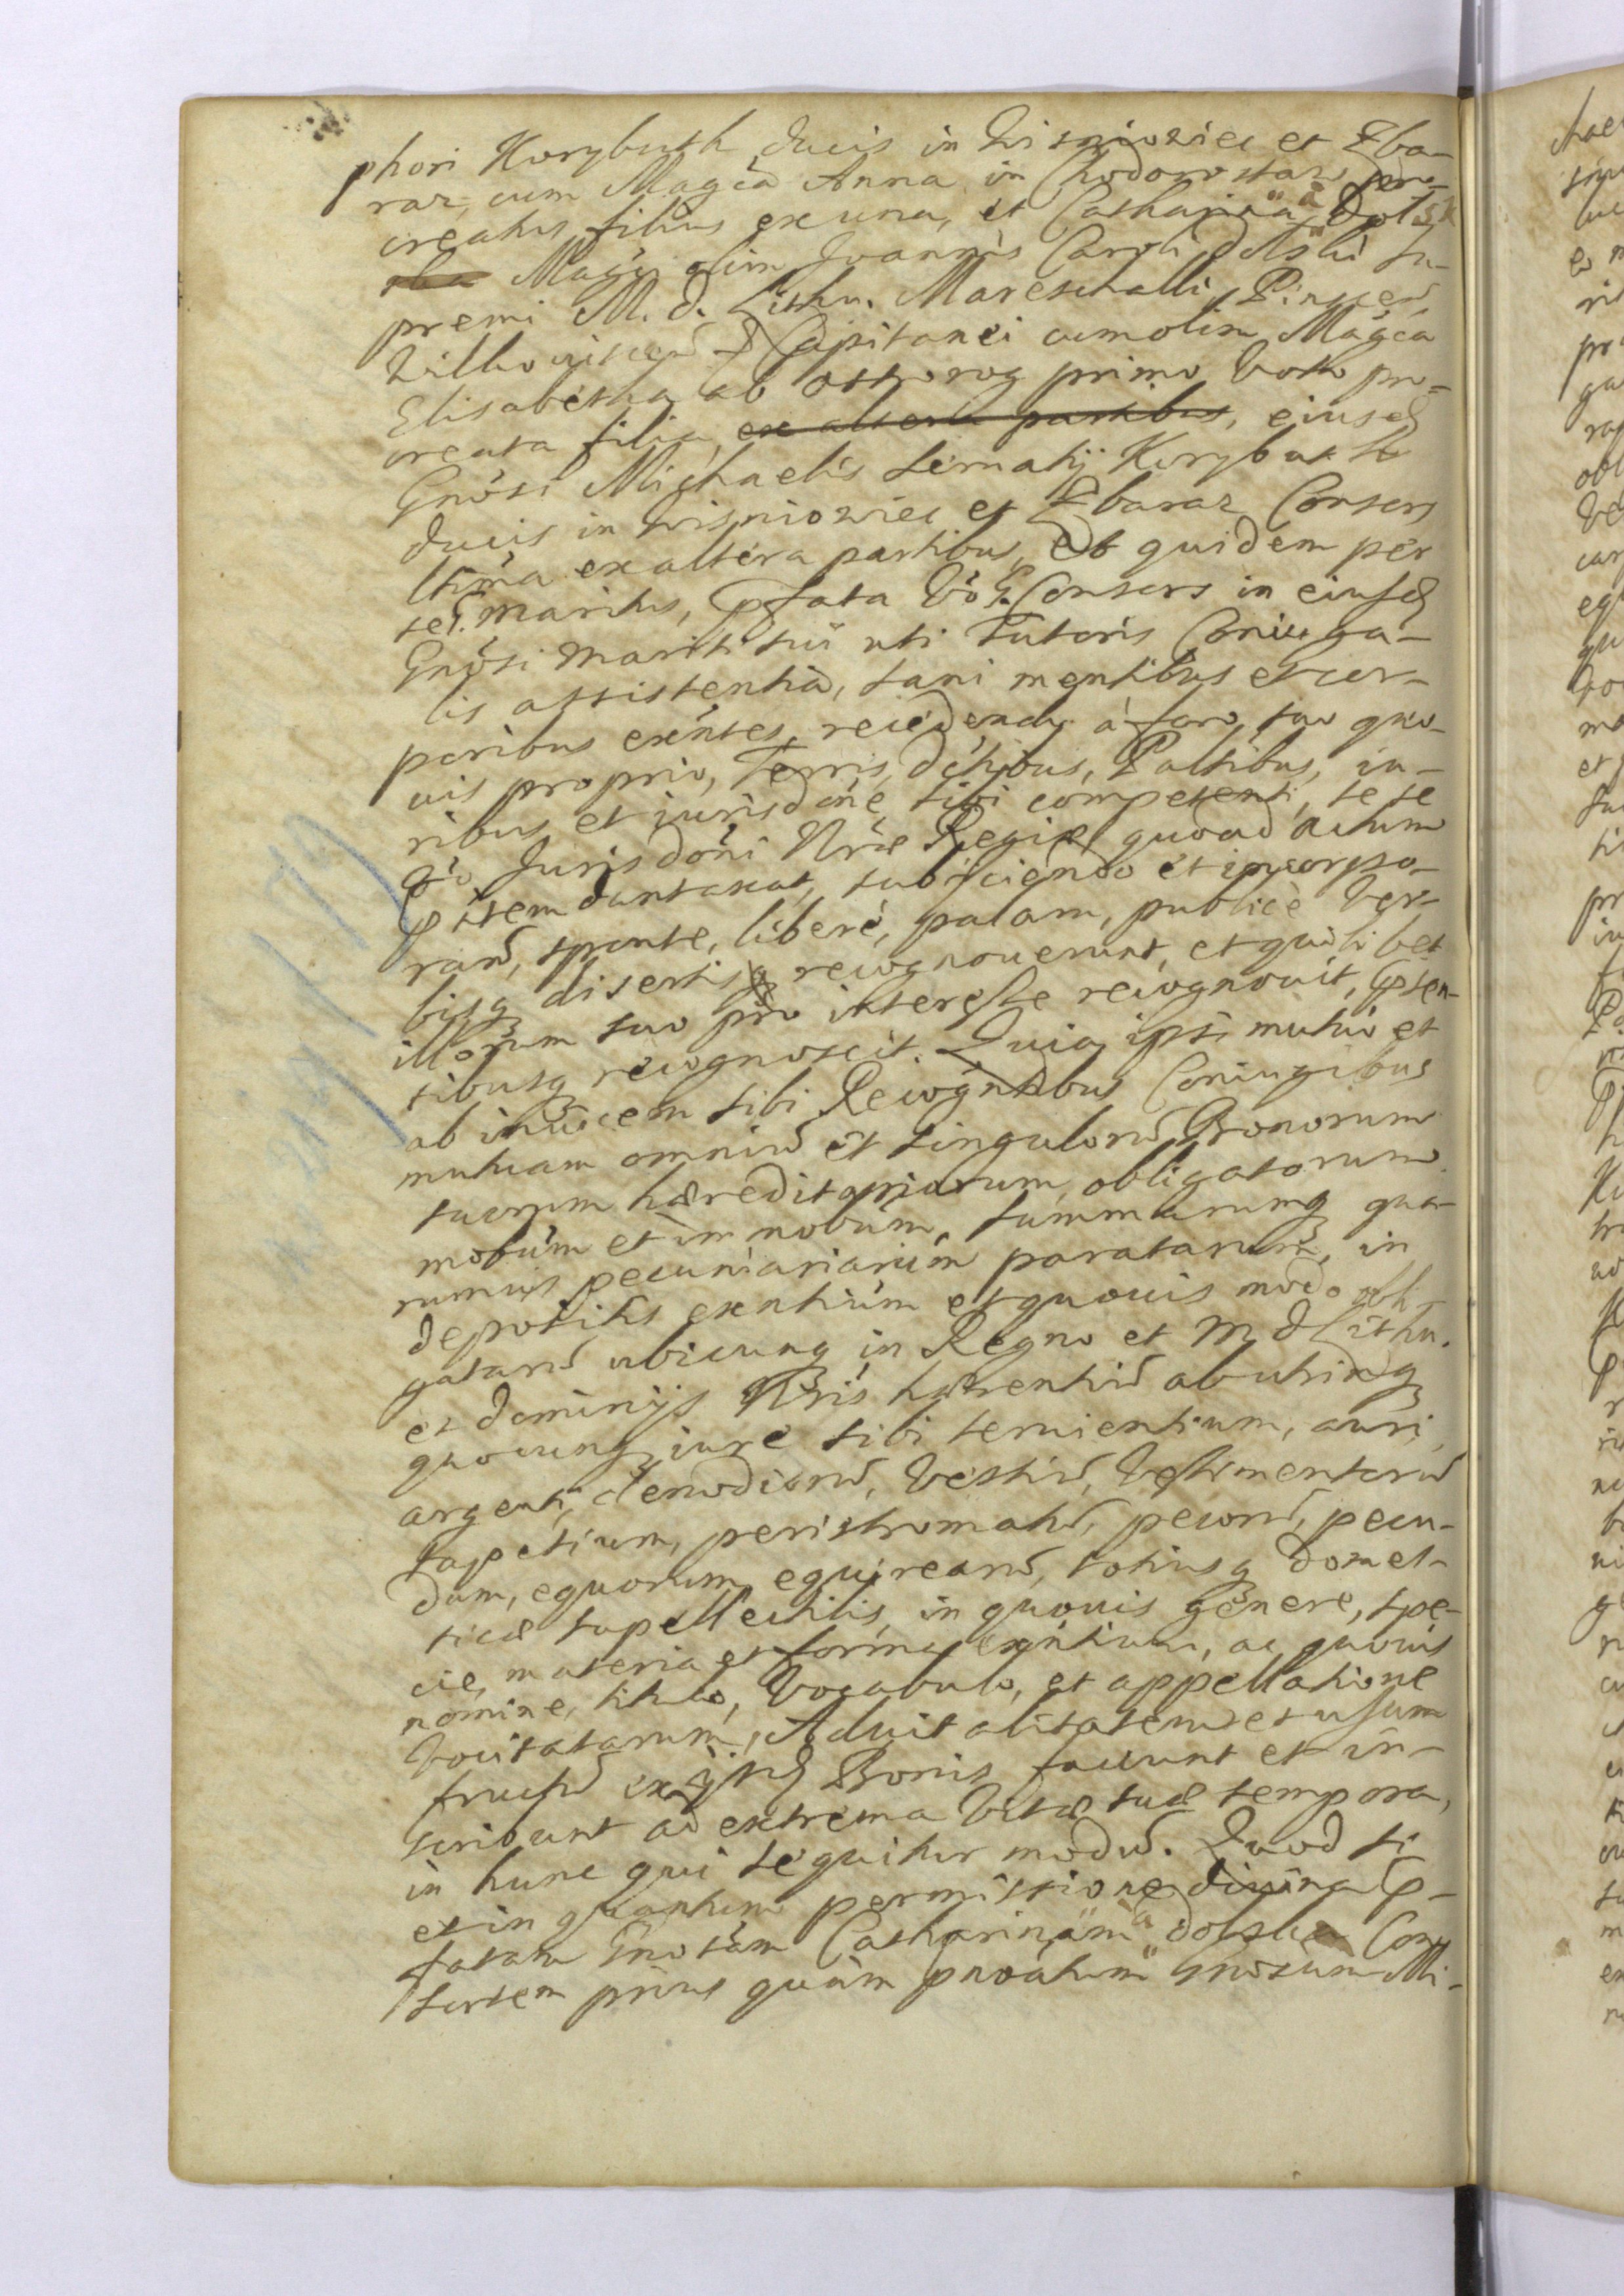 phori Korybuth Ducis in Wisniowiec et Zba-
raz, cum Magca Anna in Chodorostaw pro-
creatus filius ex una, et Catharina Dolsk
Magci olim Joannis Caroli Dolski Su-
premi M. D. Lithu. Mareschalli, Pinscen
Wilkowiscen Capitanei cum olim Magca
Elisabetha ab Ostrorog primo Voto pro-
creata filia, ex altera partibus, eiusd
Gnosi Michaelis Seruatij Korybuth
Ducis in Wisniowiec et Zbaraz Consors
ltima ex altera partibus, Et quidem per
se G. Maritus, pfata Vo G. Consors in eiusd
Gnosi Mariti sui uti Tutoris Coniuga-
lis assistentia, sani mentibus et cor-
poribus exntes, recedendo à foro suo quo-
uis proprio, Terris, dctibus, Paltibus, iu-
ribus et iurisdone sibi competenti, sese
vo Jurisdoni Nræ Regiæ quoad actum
pntem duntaxat, subijciendo et incorpo-
rand, sponte, liberè, palam, publicè Ver-
bisq disertis recognouerunt, et quilibet
illorum suo pro interesse recognouit, Psen-
tibusq recognoscit. Quia ipsi mutuò et
ab inuicem sibi Recogntibus Coniugibus
mutuam omniu et singuloru Bonorum
suorum hæreditariorum, obligatorum
mobium et immobium, summarumq qua-
rumuis pecuniariarum paratarum, in
depositis exntium et quouis modo obli-
gataru ubicunq in Regno et M D Lithu.
et Dominijs Nris hærentiu ab utrinq
quocunq iure sibi seruientium, auri,
argenti, clenodioru, Vestiu, Vestimentoru
tapetium, peristromatu, pecoru, pecu-
dum, equorum, equirearu, totiusq domes-
ticæ supellectilis, in quouis genere, spe-
cie, materia et forma exntium, ac quouis
nomine, titulo, Vocabulo, et appellatione
Vocitatarum, Aduitalitatem et usum
fructu ex ijsd Bonis faciunt et in-
scribunt ad extrema Vitæ suæ tempora,
in hunc qui sequitur modu. Quod si
et in quantum permissione diuina P-
fatam Gnosam Catharinam Dolska Con-
sortem prius quàm pnoatum Gnosum Mi-